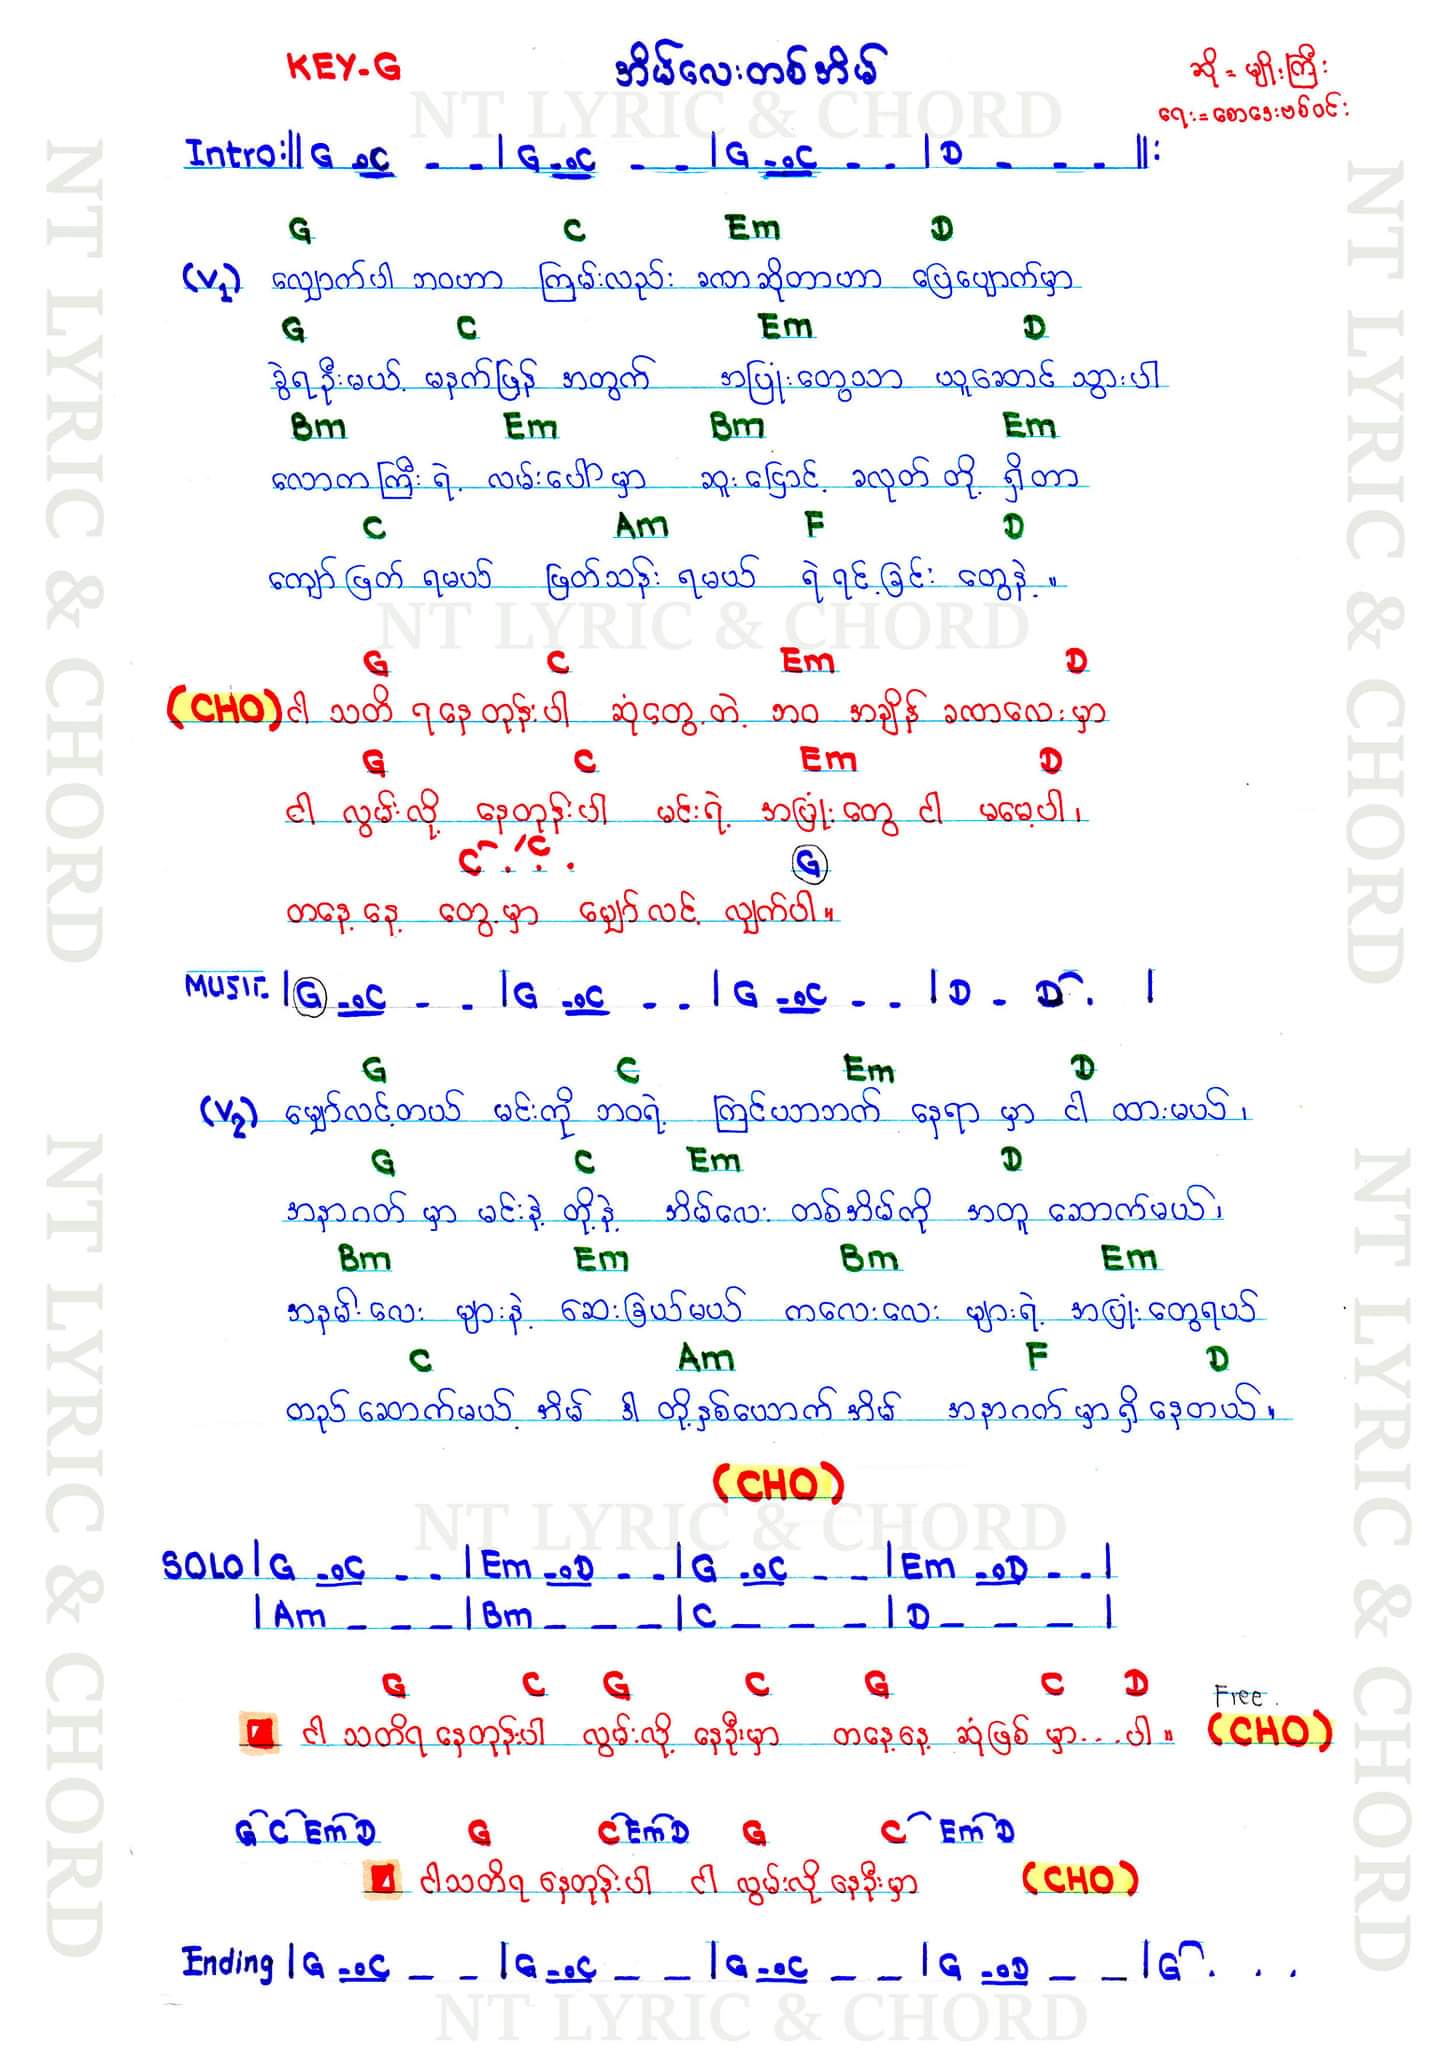 KEY-G
အိမ်လေးတစ်အိမ်
ဆို = မျိုးကြီး
ရေး = စောဒေးဗစ်ဝင်း
NT LYRIC & CHORD
Intro:|| G _oC _ _ | G _oC _ _ | G _oC _ _ | D _ _ _ ||:
G C Em D
(V1) လျှောက်ပါ ဘဝဟာ ကြမ်းလည်း ခဏဆိုတာဟာ ပြေပျောက်မှာ
G C Em D
ခွဲရဦးမယ့် မနက်ဖြန် အတွက် အပြုံးတွေသာ ယူဆောင် သွားပါ
Bm Em Bm Em
လောကကြီး ရဲ့ လမ်းပေါ်မှာ ဆူးငြောင့် ခလုတ် တို့ ရှိတာ
C Am F D
ကျော်ဖြတ် ရမယ် ဖြတ်သန်း ရမယ် ရဲရင့်ခြင်း တွေနဲ့ ။
NT LYRIC & CHORD
G C Em D
(CHO) ငါ သတိ ရနေတုန်းပါ ဆုံတွေ့တဲ့ ဘဝ အချိန် ခဏလေးမှာ
G C Em D
ငါ လွမ်းလို့ နေတုန်းပါ မင်းရဲ့ အပြုံးတွေ ငါ မမေ့ပါ ၊
C . / C . . G
တနေ့နေ့ တွေ့မှာ မျှော်လင့် လျှက်ပါ ။
MUSIC | G _oC _ _ | G _oC _ _ | G _oC _ _ | D _ D . |
G C Em D
(V2) မျှော်လင့်တယ် မင်းကို ဘဝရဲ့ ကြင်ယာဘက် နေရာ မှာ ငါ ထားမယ် ၊
G C Em D
အနာဂတ် မှာ မင်းနဲ့ တို့နဲ့ အိမ်လေး တစ်အိမ်ကို အတူ ဆောက်မယ် ၊
Bm Em Bm Em
အနမ်းလေး များနဲ့ ဆေးခြယ်မယ် ကလေးလေး များရဲ့ အပြုံးတွေရယ်
C Am F D
တည်ဆောက်မယ့် အိမ် ဒါ တို့နှစ်ယောက် အိမ် အနာဂတ် မှာရှိနေတယ် ။
(CHO)
NT LYRIC & CHORD
SOLO | G _oC _ _ | Em _oD _ _ | G _oC _ _ | Em _oD _ _ |
| Am _ _ _ | Bm _ _ _ | C _ _ _ | D _ _ _ |
G C G C G C D Free.
ငါ သတိရ နေတုန်းပါ လွမ်းလို့ နေဦးမှာ တနေ့နေ့ ဆုံဖြစ် မှာ...ပါ ။ (CHO)
G C Em D G C Em D G C Em D
ငါသတိရ နေတုန်းပါ ငါ လွမ်းလို့ နေဦးမှာ (CHO)
Ending | G _oC _ _ | G _oC _ _ | G _oC _ _ | G _oD _ _ | G . . .
NT LYRIC & CHORD
NT LYRIC & CHORD
NT LYRIC & CHORD
NT LYRIC & CHORD
NT LYRIC & CHORD